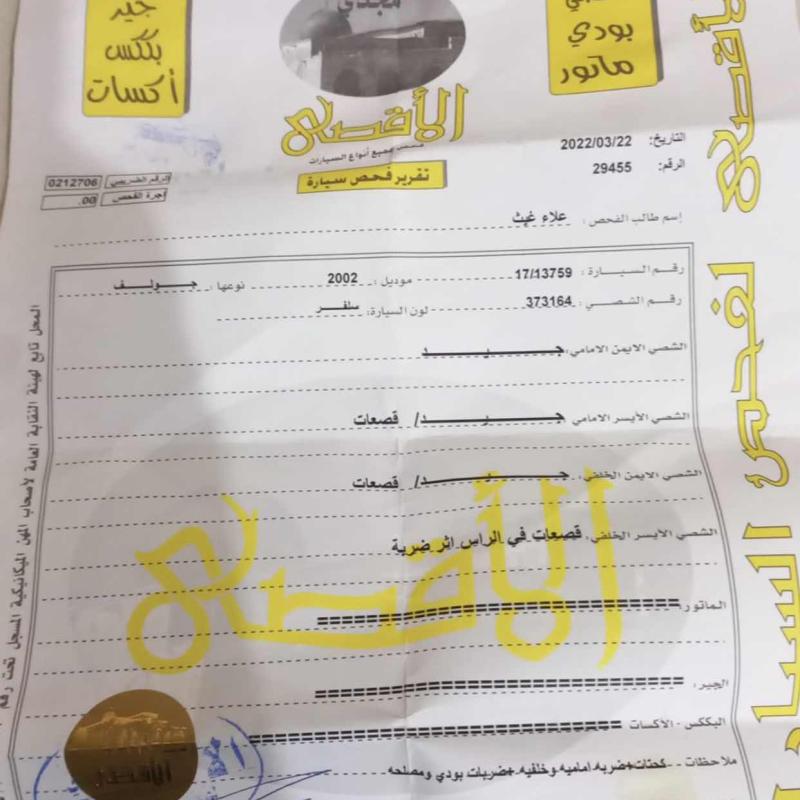 جير
بككس
أكسات
مجدي
بودي
ماتور
الأقصى
فحص جميع أنواع السيارات
تقرير فحص سيارة
التاريخ: 2022/03/22
الرقم: 29455
الرقم الضريبي 0212706
أجرة الفحص .00
إسم طالب الفحص : علاء غيث
رقم السيارة : 17/13759 موديل : 2002 نوعها : جولف
رقم الشصي : 373164 لون السيارة : سلفر
الشصي الايمن الامامي : جيد
الشصي الأيسر الامامي : جيد/ قصعات
الشصي الايمن الخلفي : جيد/ قصعات
الشصي الأيسر الخلفي : قصعات في الراس اثر ضربة
الماتور :
الجير :
البككس - الأكسات
ملاحظات كحتات+ضربه اماميه وخلفيه +ضربات بودي ومصلحه
الأقصى
الأقصى
المحل تابع لهيئة النقابة العامة لأصحاب المهن الميكانيكية المسجل تحت رقم
الأقصى لفحص السيارات